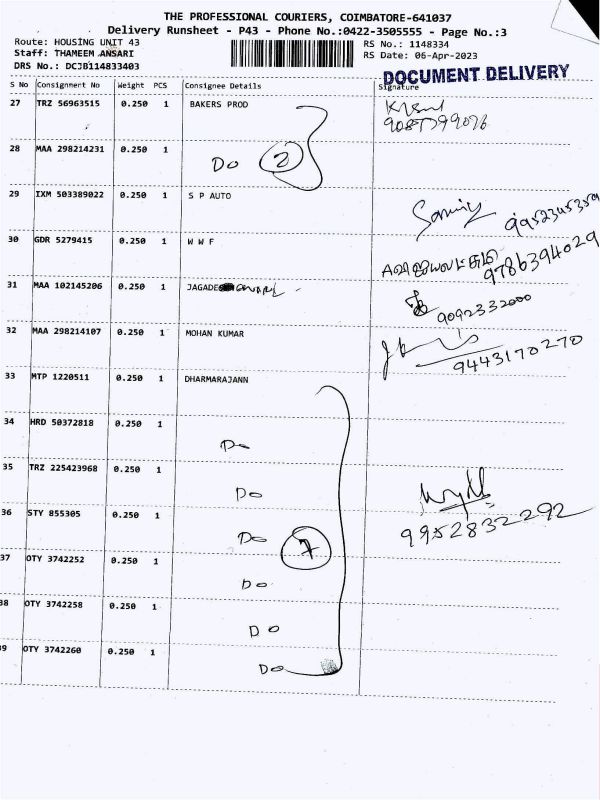 THE PROFESSIONAL COURIERS, COIMBATORE-641037
Delivery Runsheet - P43 - Phone No.:0422-3505555 - Page No.:3
Route: HOUSING UNIT 43
Staff: THAMEEM ANSARI
DRS No.: DCJB114833403
RS No.: 1148334
RS Date: 06-Apr-2023
DOCUMENT DELIVERY
S No Consignment No Weight PCS Consignee Details Signature
27 TRZ 56963515 0.250 1 BAKERS PROD
28 MAA 298214231 0.250 1 Do 2
29 IXM 503389022 0.250 1 S P AUTO 9952345359
30 GDR 5279415 0.250 1 W W F 9786394029
31 MAA 102145206 0.250 1 9092332000
32 MAA 298214107 0.250 1 MOHAN KUMAR 9443170270
33 MTP 1220511 0.250 1 DHARMARAJANN
34 HRD 50372818 0.250 1 Do
35 TRZ 225423968 0.250 1 Do
36 STY 855305 0.250 1 Do 7 9952832292
37 OTY 3742252 0.250 1 Do
38 OTY 3742258 0.250 1 Do
39 OTY 3742260 0.250 1 Do